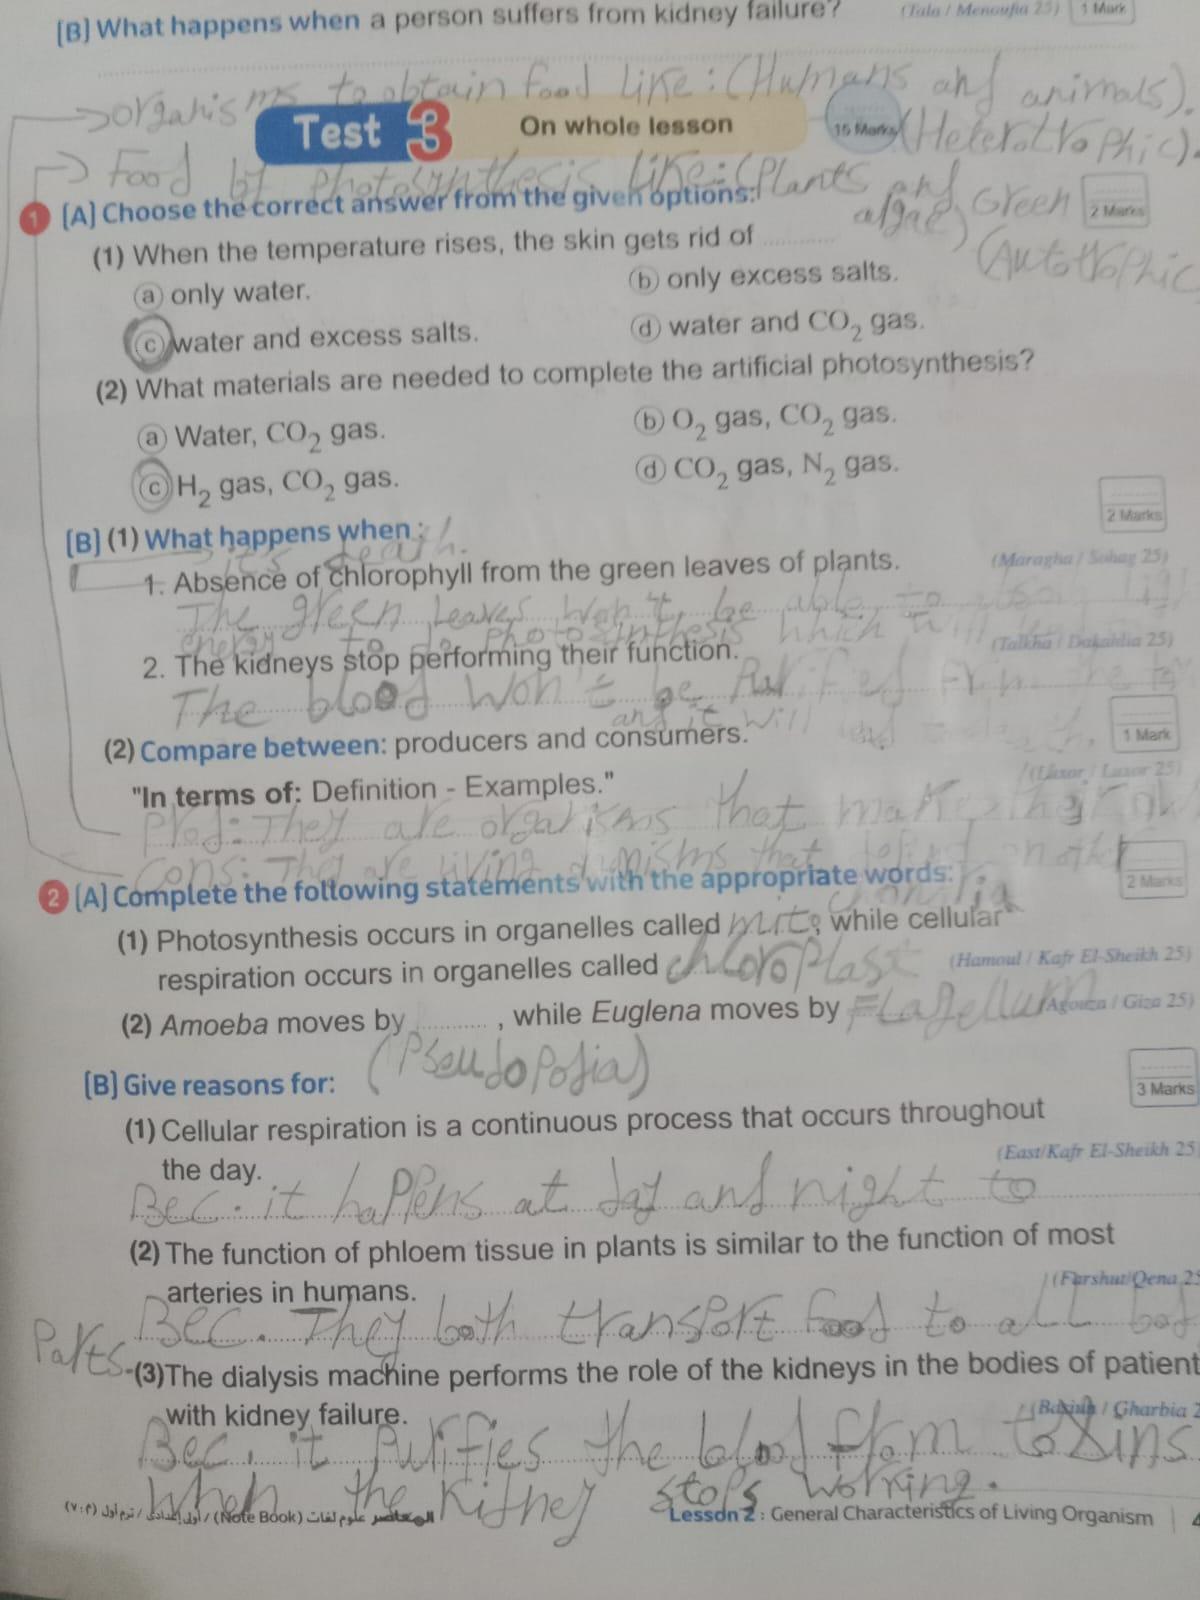 [B] What happens when a person suffers from kidney failure?
(Tala / Menoufia 25)
1 Mark
→ organisms to obtain food like: (Humans and animals).
Test 3
On whole lesson
15 Marks
(Heterotrophic).
→ Food by photosynthesis like: (Plants and Green
algae)
(Autotrophic
1 [A] Choose the correct answer from the given options:
2 Marks
(1) When the temperature rises, the skin gets rid of ............
a only water.
b only excess salts.
c water and excess salts.
d water and CO₂ gas.
(2) What materials are needed to complete the artificial photosynthesis?
a Water, CO₂ gas.
b O₂ gas, CO₂ gas.
c H₂ gas, CO₂ gas.
d CO₂ gas, N₂ gas.
2 Marks
[B] (1) What happens when:
it's death.
1. Absence of chlorophyll from the green leaves of plants.
(Maragha / Sohag 25)
The green Leaves won't be able to
energy to do photosinthesis which will
(Talkha / Dakahlia 25)
2. The kidneys stop performing their function.
The blood won't be Purified from the
and it will lead to death.
1 Mark
(2) Compare between: producers and consumers.
(Luxor / Luxor 25)
"In terms of: Definition - Examples."
Prod: They are organisms that make their own
Cons: They are living organisms that depend on other
2 [A] Complete the following statements with the appropriate words:
2 Marks
chondria
(1) Photosynthesis occurs in organelles called mito, while cellular
respiration occurs in organelles called chloroplast
(Hamoul / Kafr El-Sheikh 25)
(2) Amoeba moves by ............, while Euglena moves by Flagellum
(Agouza / Giza 25)
(Pseudopodia)
[B] Give reasons for:
3 Marks
(1) Cellular respiration is a continuous process that occurs throughout
the day.
(East/Kafr El-Sheikh 25)
Bec. it happens at day and night to
(2) The function of phloem tissue in plants is similar to the function of most
arteries in humans.
(Farshut/Qena 25
Bec. They both transport food to all bod
Parts.
(3) The dialysis machine performs the role of the kidneys in the bodies of patient
with kidney failure.
/ Gharbia 2
Bec. it purifies the blood from toxins
When the Kidney stops working.
المعاصر علوم لغات (Note Book) / أولى إعدادى / ترم أول (م : ٧)
Lesson 2 : General Characteristics of Living Organism